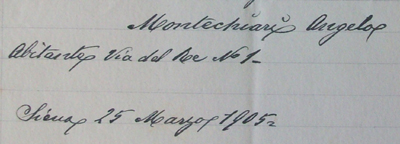 Montechiari Angelo
Abitante Via del Re No 1-
Siena 25 Marzo 1905=